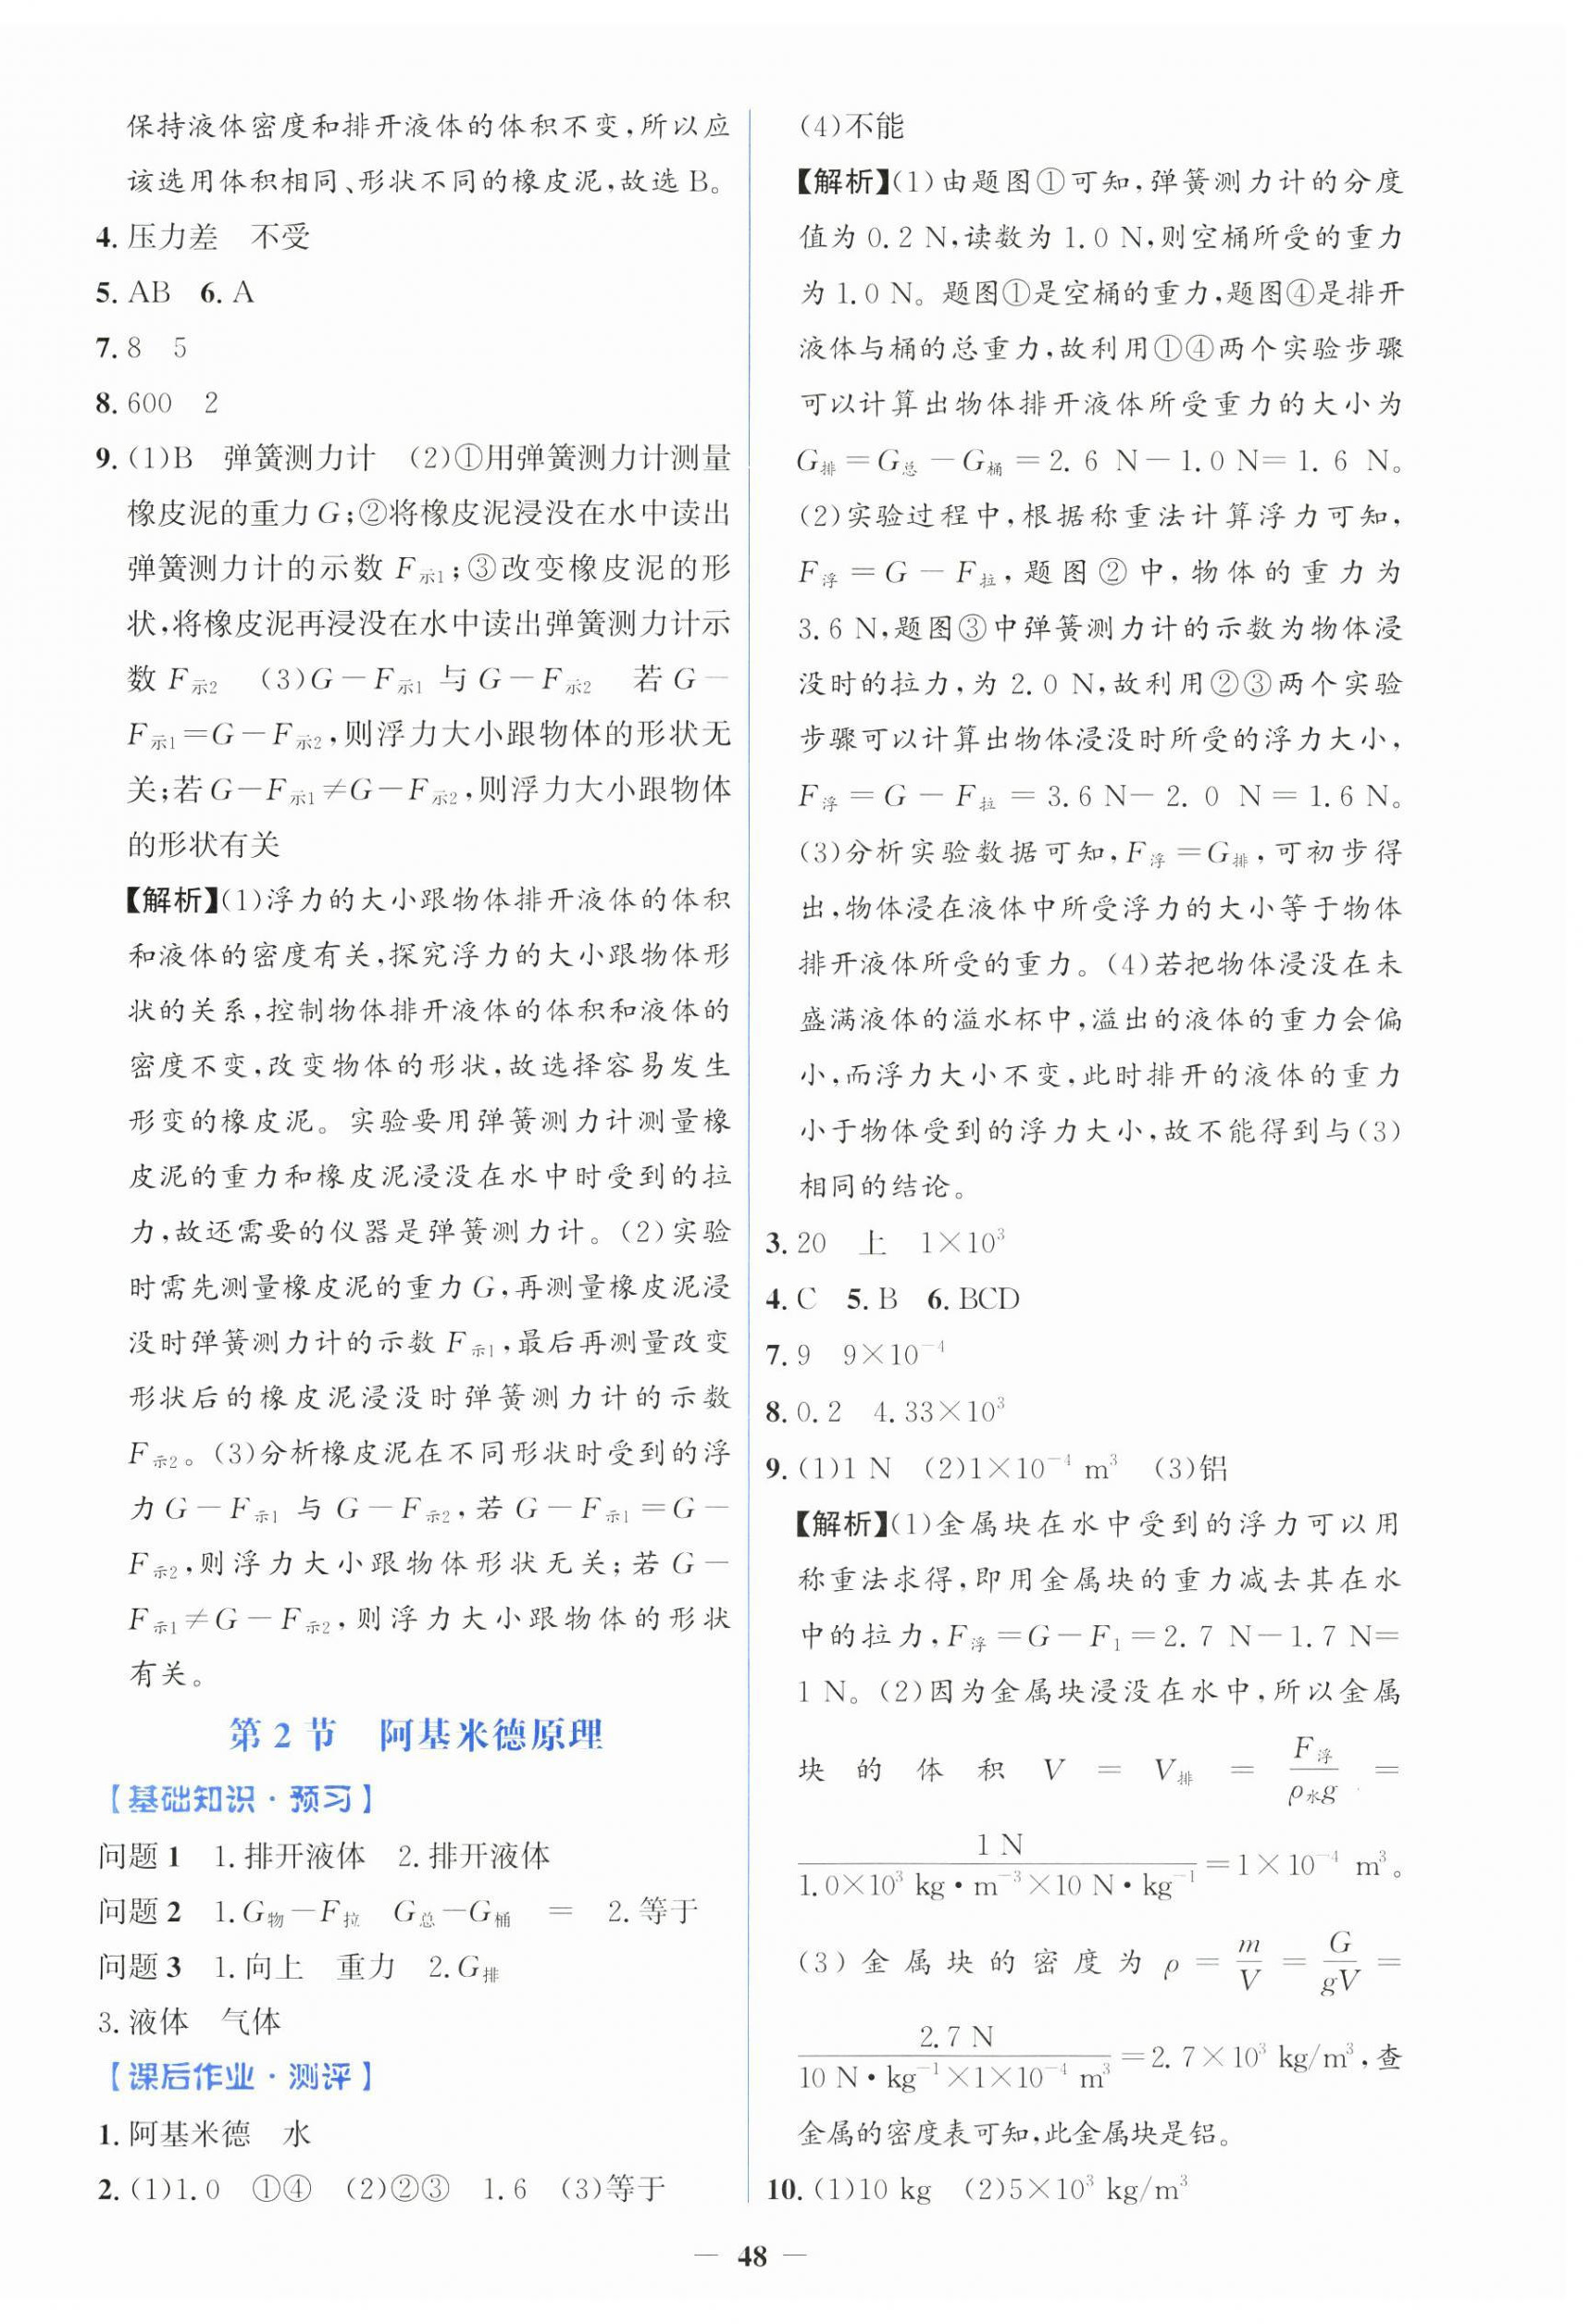 保持液体密度和排开液体的体积不变,所以应
该选用体积相同、形状不同的橡皮泥,故选 B。
4. 压力差　不受
5. AB　6. A
7. 8　5
8. 600　2
9. (1)B　弹簧测力计　(2)①用弹簧测力计测量
橡皮泥的重力 G;②将橡皮泥浸没在水中读出
弹簧测力计的示数 F示1;③改变橡皮泥的形
状,将橡皮泥再浸没在水中读出弹簧测力计示
数 F示2　(3)G－F示1 与 G－F示2　若 G－
F示1＝G－F示2,则浮力大小跟物体的形状无
关;若 G－F示1≠G－F示2,则浮力大小跟物体
的形状有关
【解析】(1)浮力的大小跟物体排开液体的体积
和液体的密度有关,探究浮力的大小跟物体形
状的关系,控制物体排开液体的体积和液体的
密度不变,改变物体的形状,故选择容易发生
形变的橡皮泥。实验要用弹簧测力计测量橡
皮泥的重力和橡皮泥浸没在水中时受到的拉
力,故还需要的仪器是弹簧测力计。(2)实验
时需先测量橡皮泥的重力 G,再测量橡皮泥浸
没时弹簧测力计的示数 F示1,最后再测量改变
形状后的橡皮泥浸没时弹簧测力计的示数
F示2。(3)分析橡皮泥在不同形状时受到的浮
力 G－F示1 与 G－F示2,若 G－F示1＝G－
F示2,则浮力大小跟物体形状无关;若 G－
F示1≠G－F示2,则浮力大小跟物体的形状
有关。
第 2 节　阿基米德原理
【基础知识·预习】
问题 1　1. 排开液体　2. 排开液体
问题 2　1. G物－F拉　G总－G桶　＝　2. 等于
问题 3　1. 向上　重力　2. G排
3. 液体　气体
【课后作业·测评】
1. 阿基米德　水
2. (1)1.0　①④　(2)②③　1.6　(3)等于
(4)不能
【解析】(1)由题图①可知,弹簧测力计的分度
值为 0.2 N,读数为 1.0 N,则空桶所受的重力
为 1.0 N。题图①是空桶的重力,题图④是排开
液体与桶的总重力,故利用①④两个实验步骤
可以计算出物体排开液体所受重力的大小为
G排＝G总－G桶＝2.6 N－1.0 N＝1.6 N。
(2)实验过程中,根据称重法计算浮力可知,
F浮＝G－F拉,题图②中,物体的重力为
3.6 N,题图③中弹簧测力计的示数为物体浸
没时的拉力,为 2.0 N,故利用②③两个实验
步骤可以计算出物体浸没时所受的浮力大小,
F浮＝G－F拉＝3.6 N－2.0 N＝1.6 N。
(3)分析实验数据可知,F浮＝G排,可初步得
出,物体浸在液体中所受浮力的大小等于物体
排开液体所受的重力。(4)若把物体浸没在未
盛满液体的溢水杯中,溢出的液体的重力会偏
小,而浮力大小不变,此时排开的液体的重力
小于物体受到的浮力大小,故不能得到与(3)
相同的结论。
3. 20　上　1×10³
4. C　5. B　6. BCD
7. 9　9×10⁻⁴
8. 0.2　4.33×10³
9. (1)1 N　(2)1×10⁻⁴ m³　(3)铝
【解析】(1)金属块在水中受到的浮力可以用
称重法求得,即用金属块的重力减去其在水
中的拉力,F浮＝G－F₁＝2.7 N－1.7 N＝
1 N。(2)因为金属块浸没在水中,所以金属
块的体积 V＝V排＝F浮/ρ水g＝
1 N/1.0×10³ kg·m⁻³×10 N·kg⁻¹＝1×10⁻⁴ m³。
(3)金属块的密度为 ρ＝m/V＝G/gV＝
2.7 N/10 N·kg⁻¹×1×10⁻⁴ m³＝2.7×10³ kg/m³,查
金属的密度表可知,此金属块是铝。
10. (1)10 kg　(2)5×10³ kg/m³
— 48 —